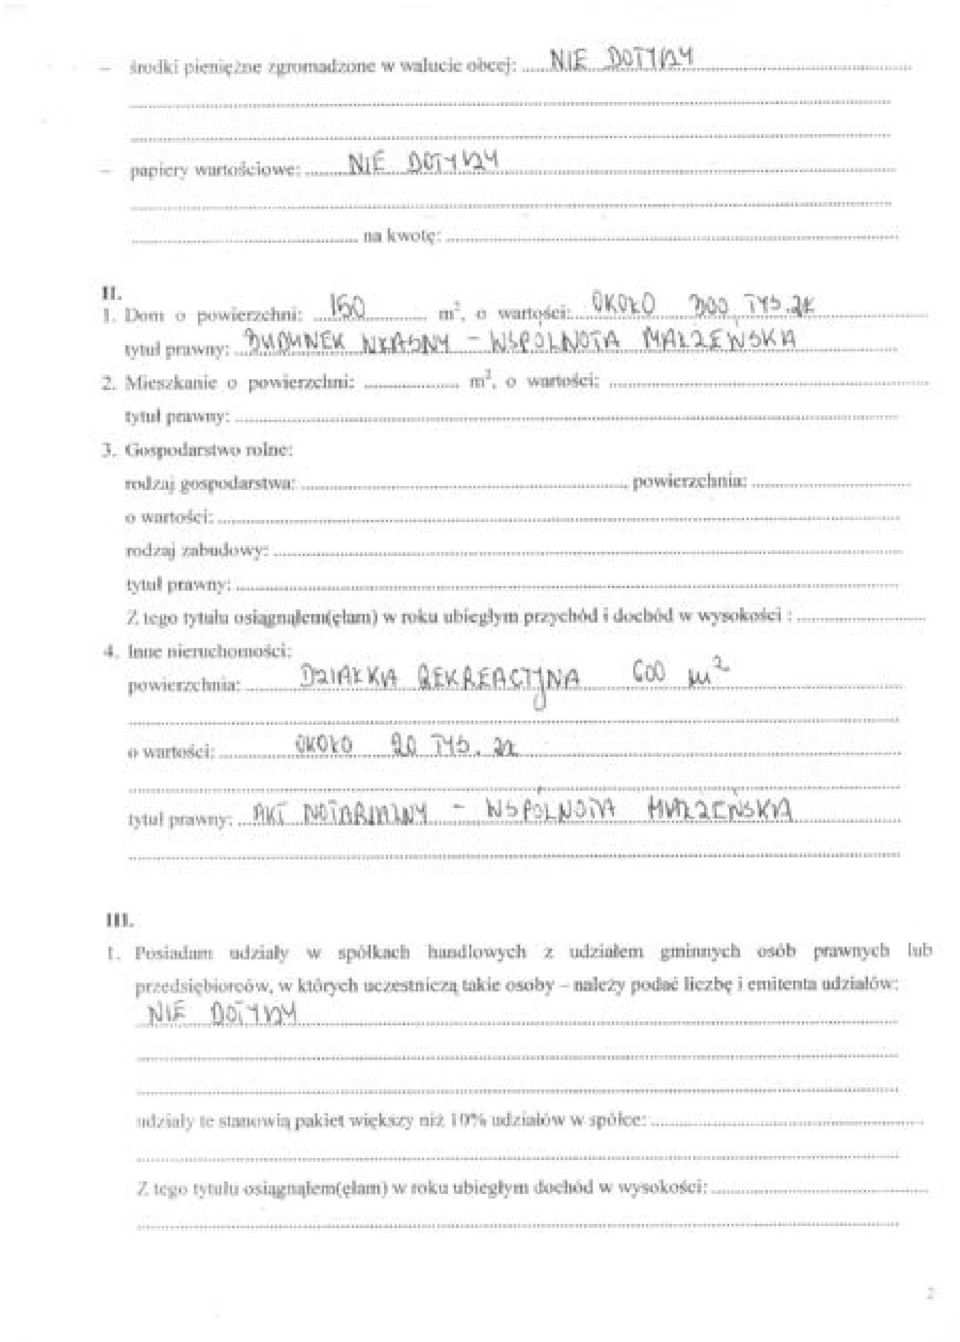 – środki pieniężne zgromadzone w walucie obcej: ......NIE DOTYCZY......
– papiery wartościowe: ......NIE DOTYCZY......
...... na kwotę: ......
II.
1. Dom o powierzchni: ......150...... m², o wartości: ......OKOŁO 300 TYS. ZŁ......
tytuł prawny: ......BUDYNEK WŁASNY - WSPÓLNOTA MAŁŻEŃSKA......
2. Mieszkanie o powierzchni: ...... m², o wartości: ......
tytuł prawny: ......
3. Gospodarstwo rolne:
rodzaj gospodarstwa: ......, powierzchnia: ......
o wartości: ......
rodzaj zabudowy: ......
tytuł prawny: ......
Z tego tytułu osiągnąłem(ęłam) w roku ubiegłym przychód i dochód w wysokości : ......
4. Inne nieruchomości:
powierzchnia: ......DZIAŁKA REKREACYJNA 600 m²......
o wartości: ......OKOŁO 20 TYS. ZŁ......
tytuł prawny: ......AKT NOTARIALNY - WSPÓLNOTA MAŁŻEŃSKA......
III.
1. Posiadam udziały w spółkach handlowych z udziałem gminnych osób prawnych lub
przedsiębiorców, w których uczestniczą takie osoby – należy podać liczbę i emitenta udziałów:
NIE DOTYCZY......
udziały te stanowią pakiet większy niż 10% udziałów w spółce: ......
Z tego tytułu osiągnąłem(ęłam) w roku ubiegłym dochód w wysokości: ......
2